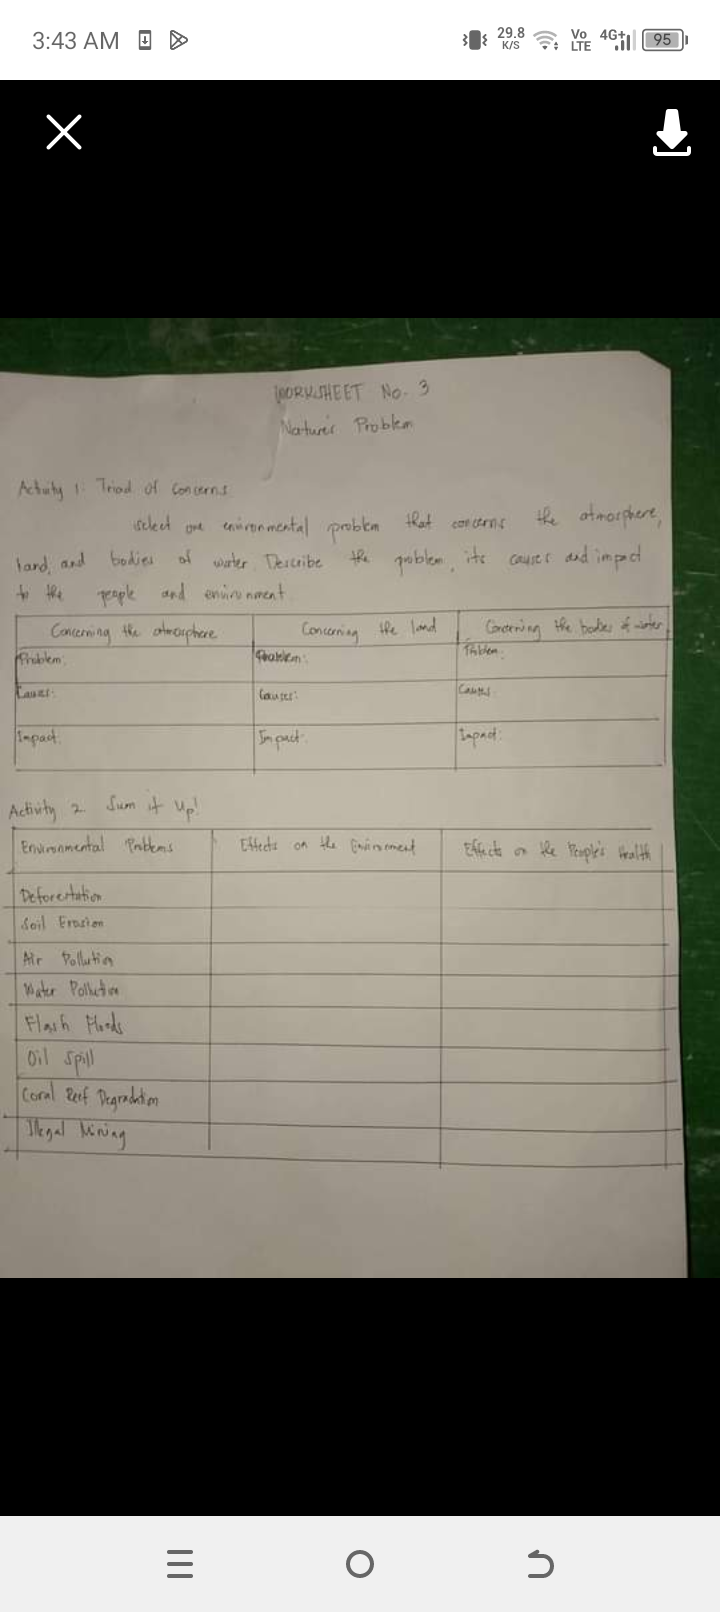 3:43 AM
29.8
K/S
Vo
LTE
4G+
95
WORKSHEET No. 3
Nature's Problem
Activity 1: Triad of Concerns
Select one environmental problem that concerns the atmosphere,
land, and bodies of water. Describe the problem, its causes and impact
to the people and environment.
Concerning the atmosphere Concerning the land Concerning the bodies of water
Problem: Problem: Problem:
Causes: Causes: Causes:
Impact: Impact: Impact:
Activity 2. Sum it Up!
Environmental Problems Effects on the Environment Effects on the People's Health
Deforestation
Soil Erosion
Air Pollution
Water Pollution
Flash Floods
Oil Spill
Coral Reef Degradation
Illegal Mining